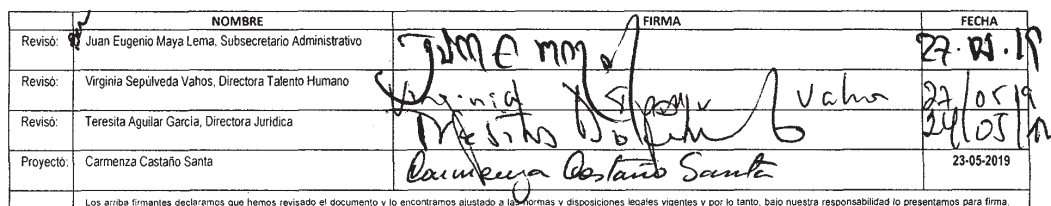 NOMBRE FIRMA FECHA
Revisó: Juan Eugenio Maya Lema, Subsecretario Administrativo 27.05.19
Revisó: Virginia Sepúlveda Vahos, Directora Talento Humano Virginia Vahos 27/05/19
Revisó: Teresita Aguilar García, Directora Jurídica 24/05/19
Proyectó: Carmenza Castaño Santa Carmenza Castaño Santa 23-05-2019
Los arriba firmantes declaramos que hemos revisado el documento y lo encontramos ajustado a las normas y disposiciones legales vigentes y por lo tanto, bajo nuestra responsabilidad lo presentamos para firma.